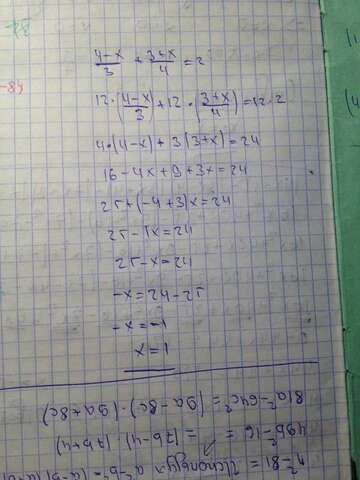 \frac{4-x}{3} + \frac{3+x}{4} = 2
12 \cdot (\frac{4-x}{3}) + 12 \cdot (\frac{3+x}{4}) = 12 \cdot 2
4 \cdot (4-x) + 3(3+x) = 24
16 - 4x + 9 + 3x = 24
25 + (-4+3)x = 24
25 - 1x = 24
25 - x = 24
-x = 24 - 25
-x = -1
x = 1
4²-81 Используя a²-b²=(a-b)(a+b)
49b²-16 = = (7b-4) (7b+4)
81a²-64c² = (9a-8c)·(9a+8c)